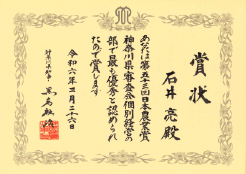 賞状
石井亮殿
あなたは第五十三回日本農業賞
神奈川県審査会個別経営の
部で最も優秀と認められ
たので賞します
令和六年三月二十六日
神奈川県知事
黒岩祐治